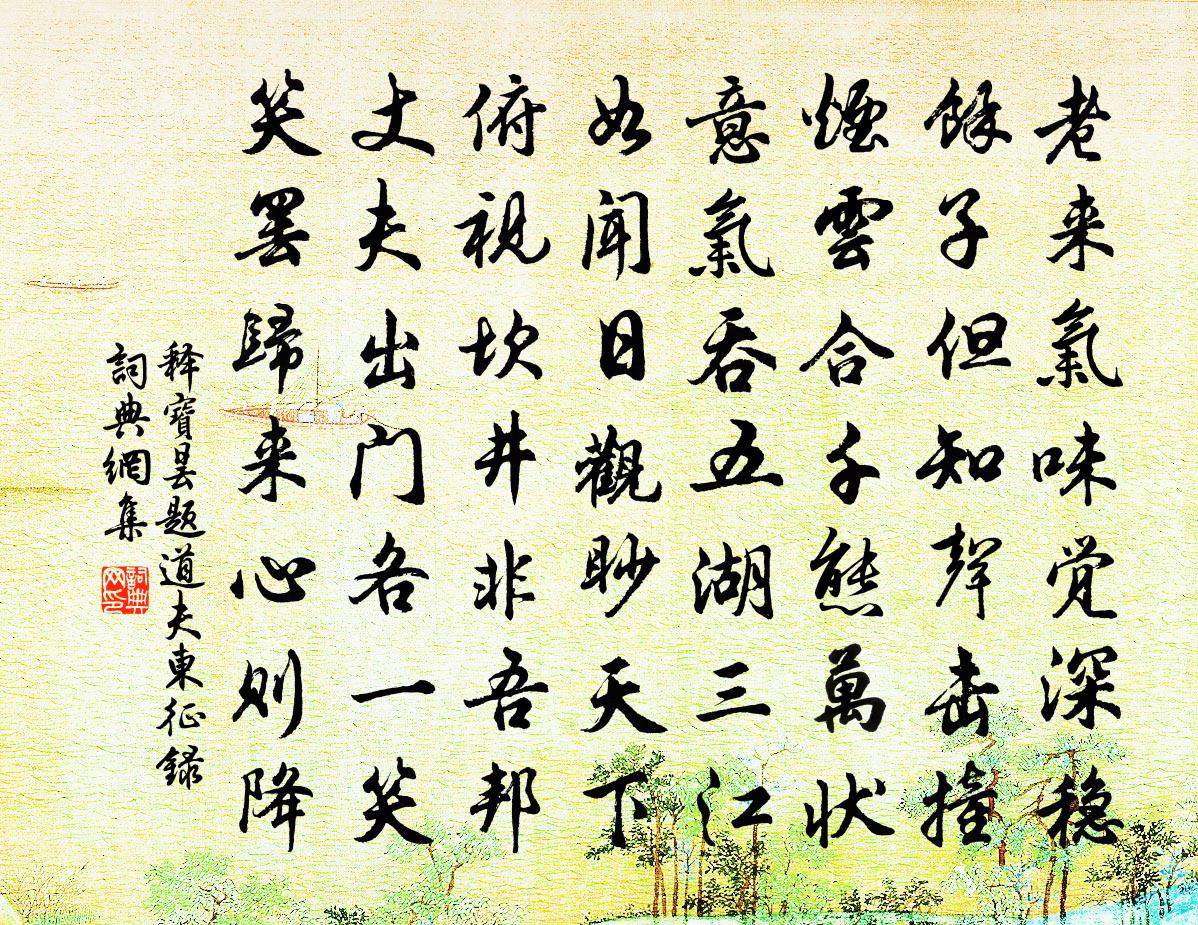 老来氣味觉深穏
餘子但知聲击撞
煙雲合千態萬状
意氣吞五湖三江
如闻日觀眇天下
俯視坎井非吾邦
丈夫出门各一笑
笑罢歸来心则降
释寶昙题道夫東征録
詞典網集
詞典网印